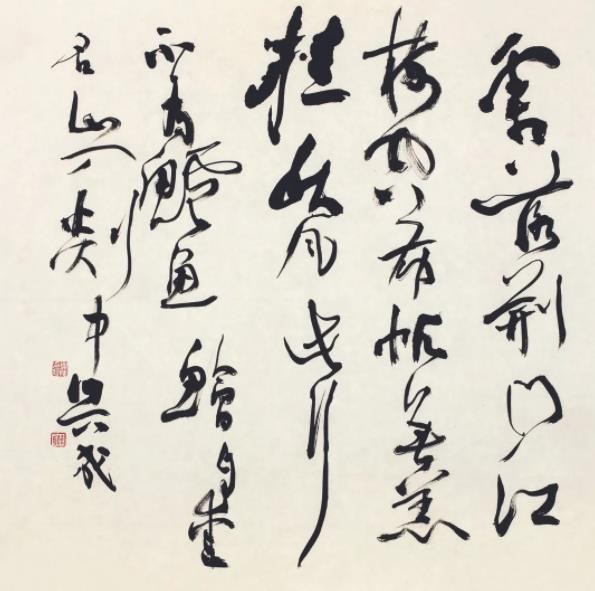 霜落荆门江
樹空布帆無恙
掛秋風此行
不為鱸魚鱠自愛
名山入剡中